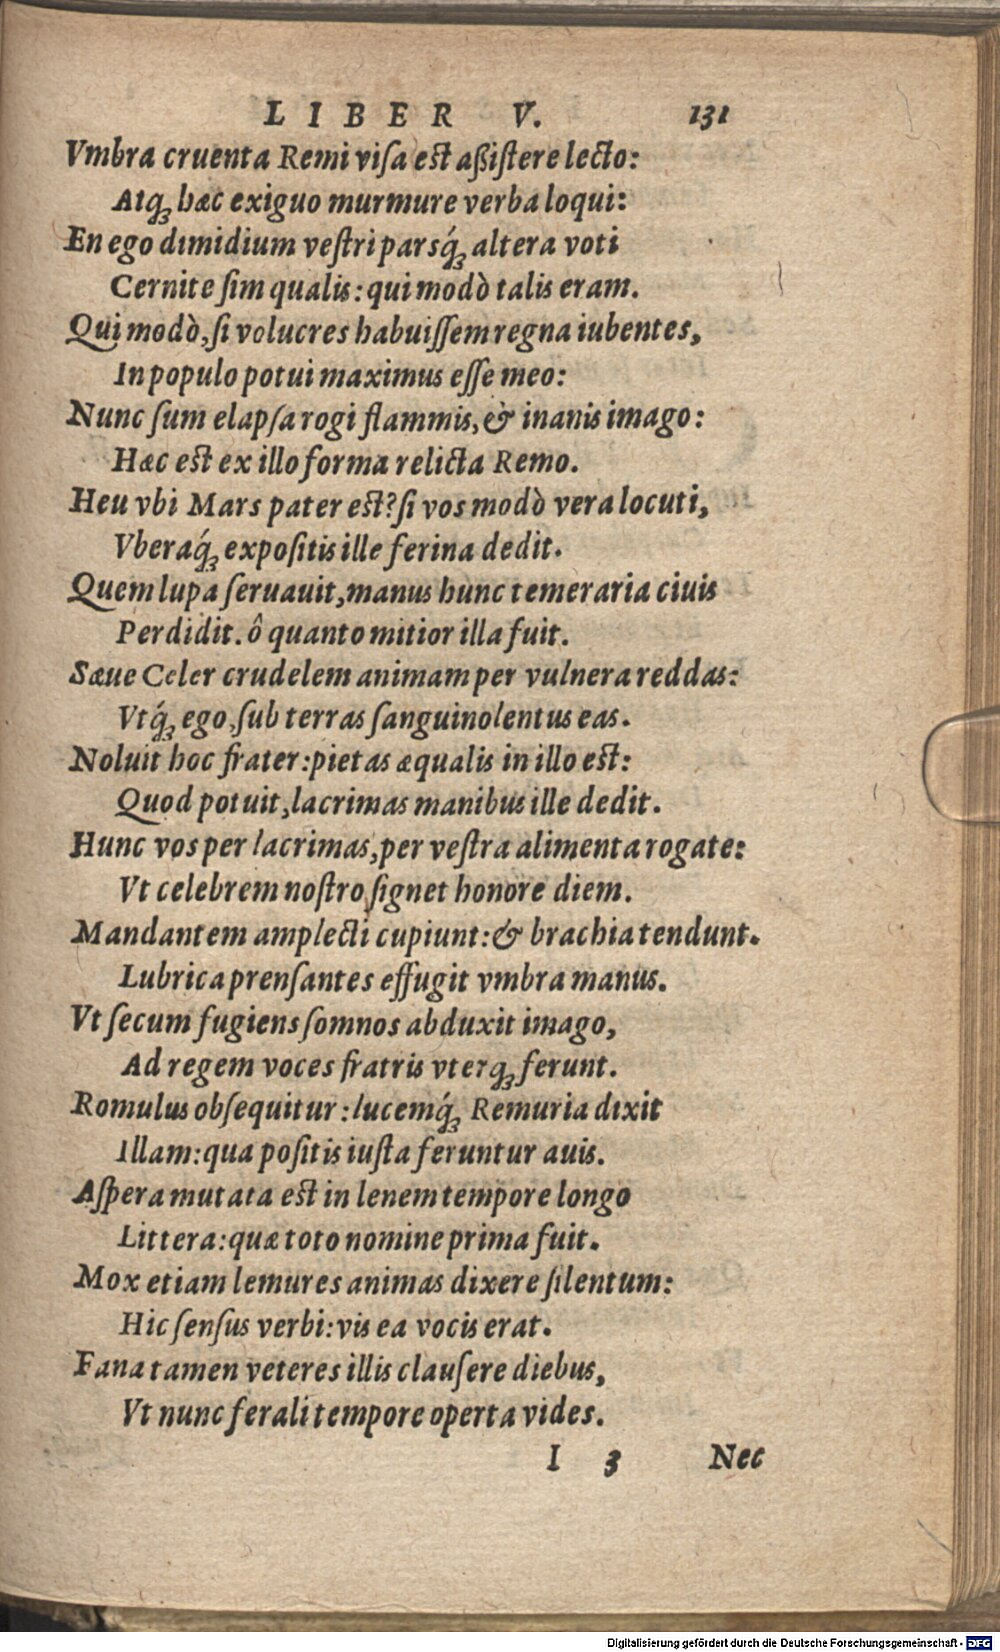 LIBER V. 131
Vmbra cruenta Remi viſa est aßiſtere lecto:
Atqꝫ hæc exiguo murmure verba loqui:
En ego dimidium veſtri parsq́ꝫ altera voti
Cernite ſim qualis: qui modò talis eram.
Qui modò, ſi volucres habuiſſem regna iubentes,
In populo potui maximus eſſe meo:
Nunc ſum elapſa rogi flammis, & inanis imago:
Hæc est ex illo forma relicta Remo.
Heu vbi Mars pater est? ſi vos modò vera locuti,
Vberaq́ꝫ expoſitis ille ferina dedit.
Quem lupa ſeruauit, manus hunc temeraria ciuis
Perdidit. ô quanto mitior illa fuit.
Sæue Celer crudelem animam per vulnera reddas:
Vtq́ꝫ ego, ſub terras ſanguinolentus eas.
Noluit hoc frater: pietas æqualis in illo est:
Quod potuit, lacrimas manibus ille dedit.
Hunc vos per lacrimas, per veſtra alimenta rogate:
Vt celebrem noſtro ſignet honore diem.
Mandantem amplecti cupiunt: & brachia tendunt.
Lubrica prenſantes effugit vmbra manus.
Vt ſecum fugiens ſomnos abduxit imago,
Ad regem voces fratris vterqꝫ ferunt.
Romulus obſequitur: lucemq́ꝫ Remuria dixit
Illam: qua poſitis iuſta feruntur auis.
Aſpera mutata est in lenem tempore longo
Littera: quæ toto nomine prima fuit.
Mox etiam lemures animas dixere ſilentum:
Hic ſenſus verbi: vis ea vocis erat.
Fana tamen veteres illis clauſere diebus,
Vt nunc ferali tempore operta vides.
I 3 Nec
Digitalisierung gefördert durch die Deutsche Forschungsgemeinschaft - DFG